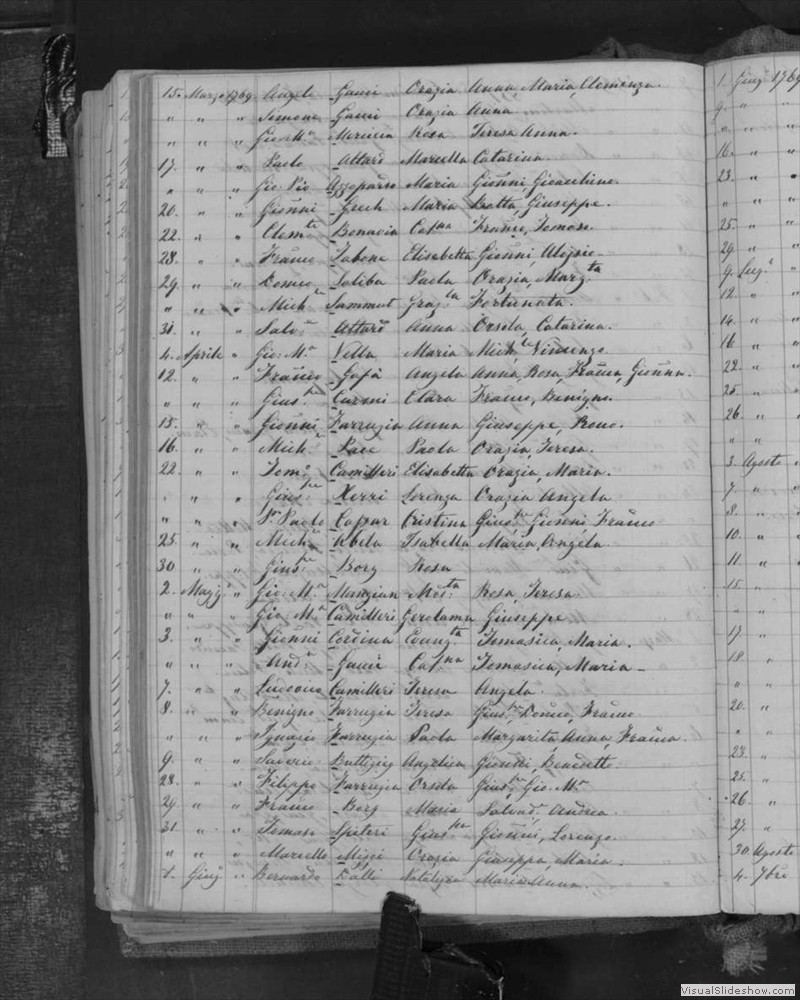 15. Marzo 1769. Angelo Gauci Orazia Anna, Maria, Clemenza.
" " " Simone Gauci Orazia Anna.
" " " Gio: Ma Mercieca Rosa Teresa Anna.
17. " " Paolo Attard Marcella Catarina.
" " " Gio: Pio Azzopardo Maria Gionni Gioacchino.
20. " " Gionni Grech Maria Betta, Giuseppe.
22. " " Clemte Bonavia Catna Franco, Tomaso.
28. " " Franco Tabone Elisabetta Gionni, Aloisio
29. " " Domco Saliba Paola Orazia, Margta
" " " Miche Sammut Grazla Fortunata.
31. " " Salvo Attard Anna Orsola, Catarina.
4. Aprile " Gio: Ma Vella Maria Miche, Vincenzo.
12. " " Franco Gafà Angela Anna, Rosa, Franca, Gionna.
" " " Giuspe Curmi Clara Franco, Benigna.
15. " " Gionni Farrugia Anna Giuseppe,
16. " " Miche Pace Paola Orazia, Teresa.
22. " " Tomo Camilleri Elisabetta Orazia, Maria.
" " " Giuspe Xerri Lorenza Orazia Angela
" " " Po Paolo Caspar Cristina Giuspe, Gionni, Franco
25. " " Miche Abela Isabella Maria, Angela.
30 " " Giuspe Borg Rosa
2. Magg. " Gio: Ma Mangian Rosa, Teresa.
" " " Gio: Ma Camilleri Gerolama Giuseppe
3. " " Gionni Cordina Tomasica, Maria.
" " " Anda Gauci Catna Tomasica, Maria
7. " " Ludovico Camilleri Teresa Angela.
8. " " Benigno Farrugia Teresa Giuspe, Domco, Franco
" " " Ignazio Farrugia Paola Margarita, Anna, Franca.
9. " " Saverio Buttigieg Angelica Gionni, Benedetto.
28. " " Filippo Farrugia Orsola Giuspe, Gio: Ma
29. " " Franco Borg Maria Salvadr, Andrea.
31. " " Tomaso Spiteri Giuspa Gionni, Lorenzo.
" " " Marcello Mizzi Orazia Giuseppa, Maria.
1. Giug. " Bernardo Dalli Natalizia Maria Anna.
1. Giug. 1769
9. " "
" " "
16. " "
23. " "
" " "
25. " "
29. " "
9. Lug. "
12. " "
14. " "
16 " "
22. " "
25. "
26. "
" "
3. Agosto
7. "
8. "
10. "
11. "
15. "
" "
17 "
18. "
" "
20. "
" "
23. "
25. "
26. "
27. "
30. Agosto
4. 7bre
VisualSlideshow.com